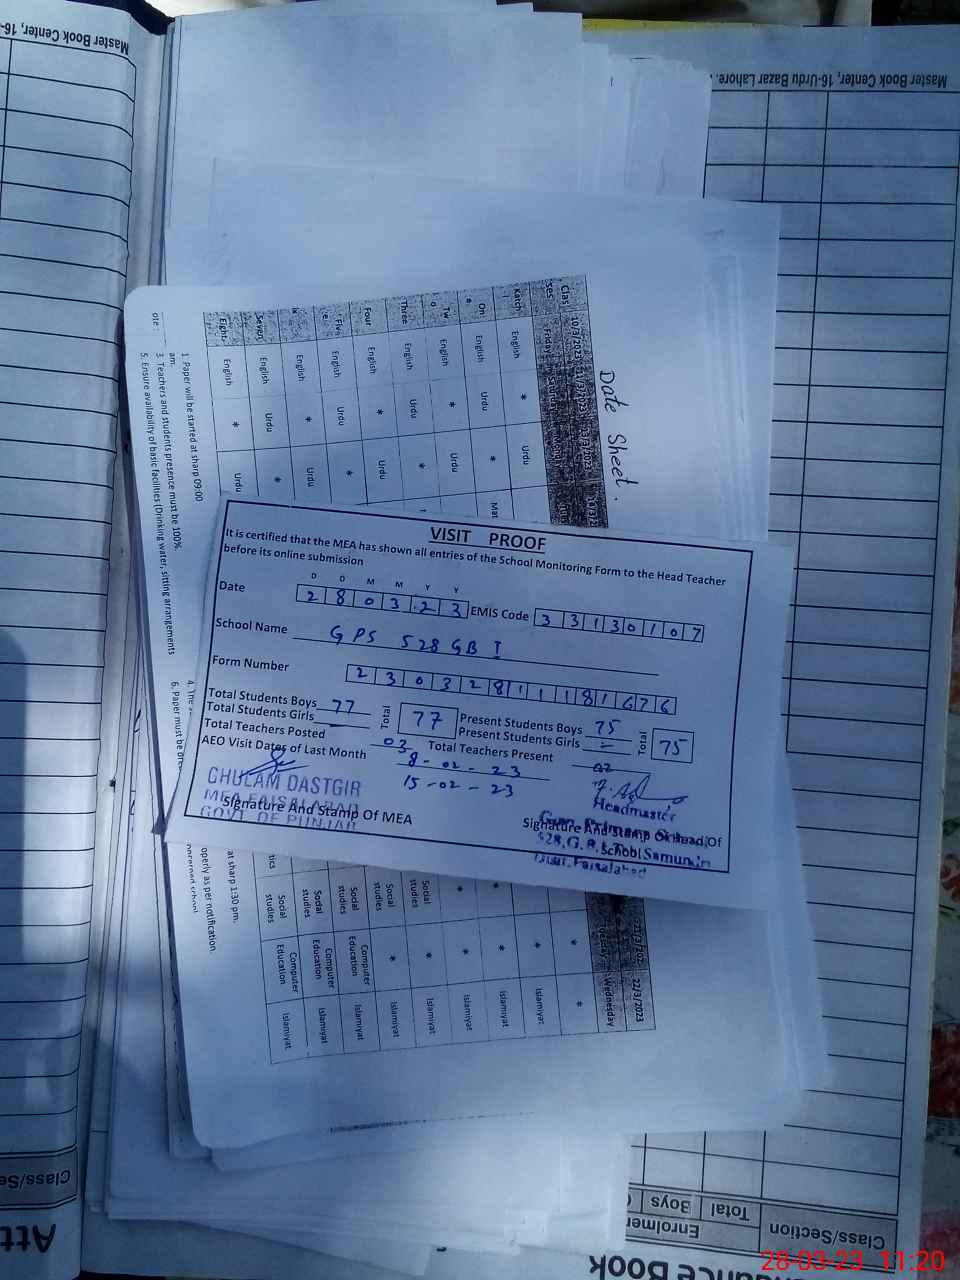 Master Book Center, 16-
Master Book Center, 16-Urdu Bazar Lahore.
Date Sheet.
10/3/2023
Friday
Katch
English
*
Urdu
English
Urdu
*
English
*
Urdu
Three
English
Urdu
*
Four
English
*
Urdu
Five
English
Urdu
*
English
*
Urdu
Seven
English
Urdu
*
Eight
English
*
Urdu
1. Paper will be started at sharp 09:00
am.
3. Teachers and students presence must be 100%.
5. Ensure availability of basic facilities (Drinking water, sitting arrangements
VISIT PROOF
It is certified that the MEA has shown all entries of the School Monitoring Form to the Head Teacher
before its online submission
D D M M Y Y
Date 2 8 0 3 2 3 EMIS Code 3 3 1 3 0 1 0 7
School Name GPS 528 GB I
Form Number 2 3 0 3 2 8 1 1 1 8 1 6 7 6
Total Students Boys 77 Total 77 Present Students Boys 75 Total 75
Total Students Girls - Present Students Girls -
Total Teachers Posted 03 Total Teachers Present 02
AEO Visit Dates of Last Month 8-02-23
15-02-23
GHULAM DASTGIR
MEA FAISALABAD
GOVT. OF PUNJAB
Signature And Stamp Of MEA
Headmaster
Signature And Stamp Of Head Of
School
Faisalabad
at sharp 1:30 pm.
operly as per notification.
22/3/2023
Wednesday
Social studies
Computer Education
Islamiyat
Social studies
Computer Education
Islamiyat
Social studies
Computer Education
Islamiyat
Social studies
*
Islamiyat
Social studies
*
Islamiyat
*
*
Islamiyat
*
Islamiyat
*
Islamiyat
*
*
Class/Se
Att
Class/Section
Total
Boys
Enrolmen
ance Book
28-03-23 11:20